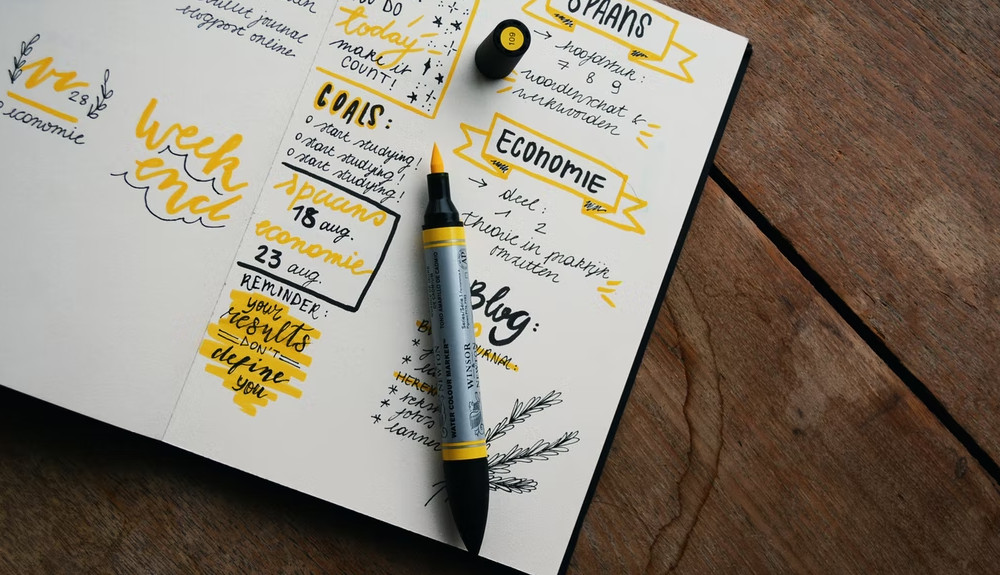 bullet journal
blogpost online
vr 28
economie
week
end
DO
today
make it
COUNT!
GOALS:
o start studying!
o start studying!
o start studying!
spaans
18 aug.
economie
23 aug.
REMINDER:
your
results
DON'T
define
you
109
SPAANS
→ hoofdstuk:
7 8 9
woordenschat &
werkwoorden
ECONOMIE
→ deel:
1 2
theorie in praktijk
omzetten
Blog:
HEREN
WATER COLOUR MARKER
WINSOR